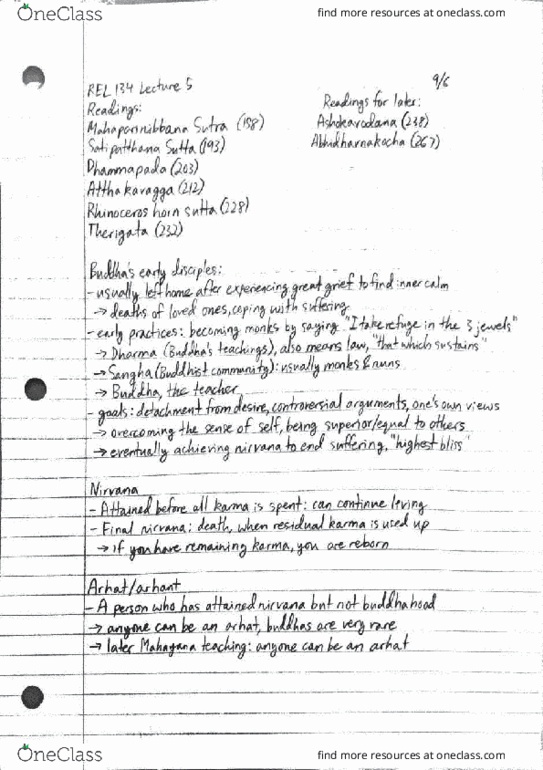 OneClass
find more resources at oneclass.com
9/6
REL 134 Lecture 5
Readings:
Mahaparinibbana Sutra (158)
Satipatthana Sutta (193)
Dhammapada (203)
Atthakavagga (212)
Rhinoceros horn sutta (228)
Therigata (232)
Readings for later:
Ashokavadana (238)
Abhidharmakocha (267)
Buddha's early disciples:
- usually left home after experiencing great grief to find inner calm
→ deaths of loved ones, coping with suffering
- early practices: becoming monks by saying "I take refuge in the 3 jewels"
→ Dharma (Buddha's teachings), also means law, "that which sustains"
→ Sangha (Buddhist community): usually monks & nuns
→ Buddha, the teacher
- goals: detachment from desire, controversial arguments, one's own views
→ overcoming the sense of self, being superior/equal to others
→ eventually achieving nirvana to end suffering, "highest bliss"
Nirvana
- Attained before all karma is spent: can continue living
- Final nirvana: death, when residual karma is used up
→ if you have remaining karma, you are reborn
Arhat/arhant
- A person who has attained nirvana but not buddhahood
→ anyone can be an arhat, buddhas are very rare
→ later Mahayana teaching: anyone can be an arhat
OneClass
find more resources at oneclass.com